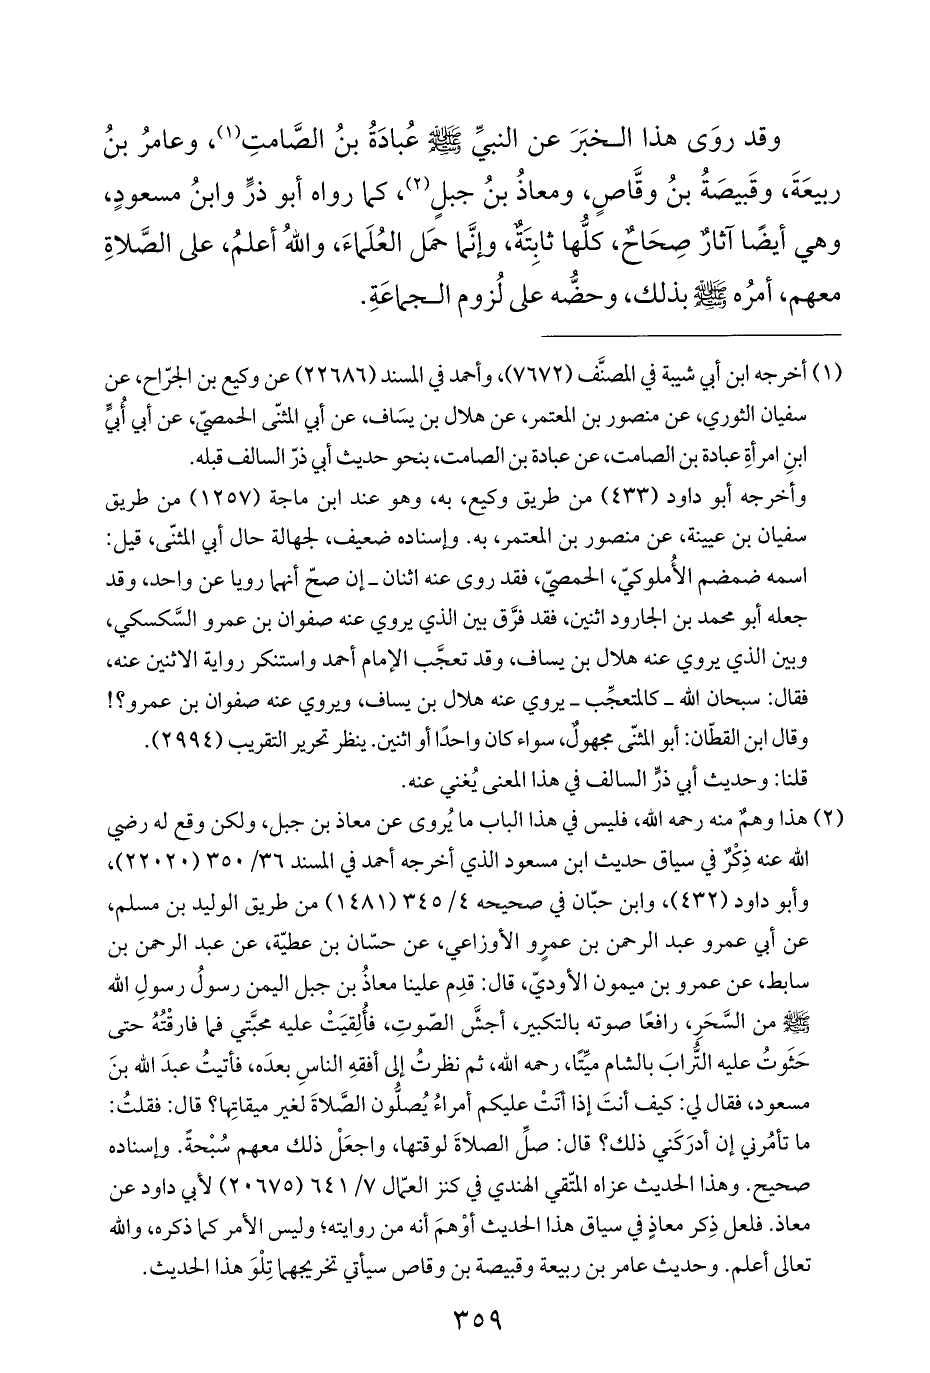 وقد روَى هذا الـخبَرَ عن النبيِّ ﷺ عُبادَةُ بنُ الصَّامتِ(١)، وعامرُ بنُ
ربيعَةَ، وقَبيصَةُ بنُ وقَّاصٍ، ومعاذُ بنُ جبلٍ(٢)، كما رواه أبو ذرٍّ وابنُ مسعودٍ،
وهي أيضًا آثارٌ صِحَاحٌ، كلُّها ثابِتَةٌ، وإنَّما حمَل العُلَماءَ، واللهُ أعلمُ، على الصَّلاةِ
معهم، أمرُه ﷺ بذلك، وحضُّه على لُزوم الـجماعَةِ.
(١) أخرجه ابن أبي شيبة في المصنَّف (٧٦٧٢)، وأحمد في المسند (٢٢٦٨٦) عن وكيع بن الجرّاح، عن
سفيان الثوري، عن منصور بن المعتمر، عن هلال بن يسَاف، عن أبي المثنّى الحمصيّ، عن أبي أُبيٍّ
ابنِ امرأةِ عبادة بن الصامت، عن عبادة بن الصامت، بنحو حديث أبي ذرّ السالف قبله.
وأخرجه أبو داود (٤٣٣) من طريق وكيع، به، وهو عند ابن ماجة (١٢٥٧) من طريق
سفيان بن عيينة، عن منصور بن المعتمر، به. وإسناده ضعيف، لجهالة حال أبي المثنّى، قيل:
اسمه ضمضم الأُملوكيّ، الحمصيّ، فقد روى عنه اثنان ـ إن صحّ أنهما رويا عن واحد، وقد
جعله أبو محمد بن الجارود اثنين، فقد فرَّق بين الذي يروي عنه صفوان بن عمرو السَّكسكي،
وبين الذي يروي عنه هلال بن يساف، وقد تعجَّب الإمام أحمد واستنكر رواية الاثنين عنه،
فقال: سبحان الله ـ كالمتعجِّب ـ يروي عنه هلال بن يساف، ويروي عنه صفوان بن عمرو؟!
وقال ابن القطّان: أبو المثنّى مجهولٌ، سواء كان واحدًا أو اثنين. ينظر تحرير التقريب (٢٩٩٤).
قلنا: وحديث أبي ذرٍّ السالف في هذا المعنى يُغني عنه.
(٢) هذا وهمٌ منه رحمه الله، فليس في هذا الباب ما يُروى عن معاذ بن جبل، ولكن وقع له رضي
الله عنه ذِكْرٌ في سياق حديث ابن مسعود الذي أخرجه أحمد في المسند ٣٦/ ٣٥٠ (٢٢٠٢٠)،
وأبو داود (٤٣٢)، وابن حبّان في صحيحه ٤/ ٣٤٥ (١٤٨١) من طريق الوليد بن مسلم،
عن أبي عمرو عبد الرحمن بن عمرٍو الأوزاعي، عن حسّان بن عطيّة، عن عبد الرحمن بن
سابط، عن عمرو بن ميمون الأوديّ، قال: قدِم علينا معاذُ بن جبل اليمن رسولُ رسولِ الله
ﷺ من السَّحَرِ، رافعًا صوته بالتكبير، أجشَّ الصّوتِ، فأُلقِيَتْ عليه محبَّتي فما فارقْتُهُ حتى
حَثَوتُ عليه التُّرابَ بالشام ميِّتًا، رحمه الله، ثم نظرتُ إلى أفقهِ الناسِ بعدَه، فأتيتُ عبدَ الله بنَ
مسعود، فقال لي: كيف أنتَ إذا أتَتْ عليكم أمراءُ يُصلُّون الصَّلاةَ لغير ميقاتِها؟ قال: فقلتُ:
ما تأمُرني إن أدرَكَني ذلك؟ قال: صلِّ الصلاةَ لوقتها، واجعَلْ ذلك معهم سُبْحةً. وإسناده
صحيح. وهذا الحديث عزاه المتّقي الهندي في كنز العمّال ٧/ ٦٤١ (٢٠٦٧٥) لأبي داود عن
معاذ. فلعل ذِكر معاذٍ في سياق هذا الحديث أوْهمَ أنه من روايته؛ وليس الأمر كما ذكره، والله
تعالى أعلم. وحديث عامر بن ربيعة وقبيصة بن وقاص سيأتي تخريجهما تِلْوَ هذا الحديث.
٣٥٩